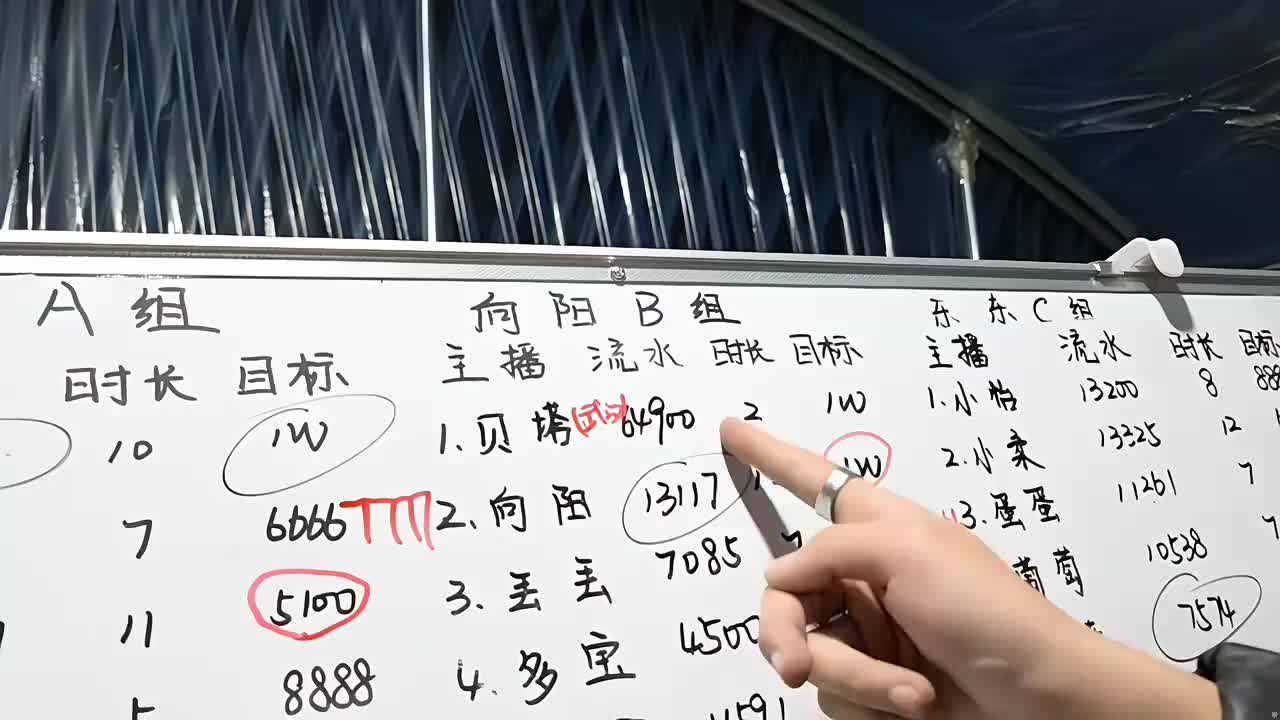 A组
时长 目标
10 1W
7 6666
11 5100
8888
向阳B组
主播 流水 时长 目标
1.贝塔 64900 2 1W
2.向阳 13117 1W
3.丢丢 7085
4.多宝 4500
乐东C组
主播 流水 时长 目标
1.小怡 13200 8 888
2.小柔 13325 12
3.蛋蛋 11261 7
葡萄 10538 7
7574